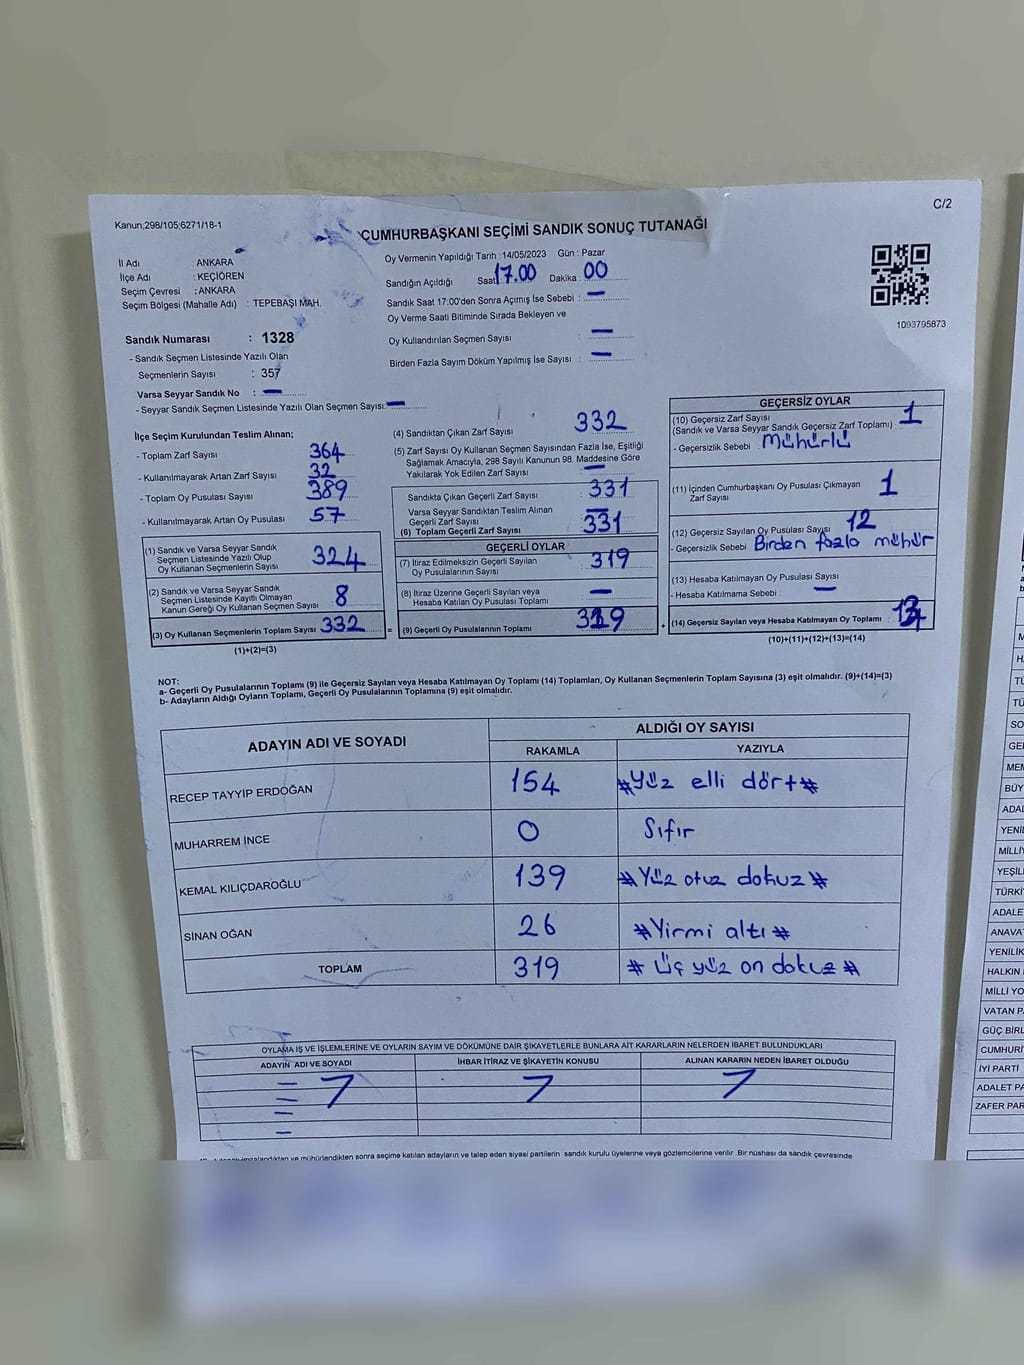 Kanun;298/105;6271/18-1
C/2
CUMHURBAŞKANI SEÇİMİ SANDIK SONUÇ TUTANAĞI
İl Adı : ANKARA
İlçe Adı : KEÇİÖREN
Seçim Çevresi : ANKARA
Seçim Bölgesi (Mahalle Adı) : TEPEBAŞI MAH.
Oy Vermenin Yapıldığı Tarih : 14/05/2023 Gün : Pazar
Sandığın Açıldığı Saat 17.00 Dakika : 00
Sandık Saat 17:00'den Sonra Açımış İse Sebebi : —
Oy Verme Saati Bitiminde Sırada Bekleyen ve
Oy Kullandırılan Seçmen Sayısı : —
Birden Fazla Sayım Döküm Yapılmış İse Sayısı : —
1093795873
Sandık Numarası : 1328
- Sandık Seçmen Listesinde Yazılı Olan
Seçmenlerin Sayısı : 357
Varsa Seyyar Sandık No : —
- Seyyar Sandık Seçmen Listesinde Yazılı Olan Seçmen Sayısı: —
İlçe Seçim Kurulundan Teslim Alınan;
- Toplam Zarf Sayısı 364
- Kullanılmayarak Artan Zarf Sayısı 32
- Toplam Oy Pusulası Sayısı 389
- Kullanılmayarak Artan Oy Pusulası 57
(1) Sandık ve Varsa Seyyar Sandık
Seçmen Listesinde Yazılı Olup
Oy Kullanan Seçmenlerin Sayısı 324
(2) Sandık ve Varsa Seyyar Sandık
Seçmen Listesinde Kayıtlı Olmayan
Kanun Gereği Oy Kullanan Seçmen Sayısı 8
(3) Oy Kullanan Seçmenlerin Toplam Sayısı 332 =
(1)+(2)=(3)
(4) Sandıktan Çıkan Zarf Sayısı 332
(5) Zarf Sayısı Oy Kullanan Seçmen Sayısından Fazla İse, Eşitliği
Sağlamak Amacıyla, 298 Sayılı Kanunun 98. Maddesine Göre
Yakılarak Yok Edilen Zarf Sayısı : —
Sandıkta Çıkan Geçerli Zarf Sayısı : 331
Varsa Seyyar Sandıktan Teslim Alınan
Geçerli Zarf Sayısı : —
(6) Toplam Geçerli Zarf Sayısı : 331
GEÇERLİ OYLAR
(7) İtiraz Edilmeksizin Geçerli Sayılan
Oy Pusulalarının Sayısı : 319
(8) İtiraz Üzerine Geçerli Sayılan veya
Hesaba Katılan Oy Pusulası Toplamı : —
(9) Geçerli Oy Pusulalarının Toplamı : 319 +
GEÇERSİZ OYLAR
(10) Geçersiz Zarf Sayısı
(Sandık ve Varsa Seyyar Sandık Geçersiz Zarf Toplamı) : 1
- Geçersizlik Sebebi : Mühürlü
(11) İçinden Cumhurbaşkanı Oy Pusulası Çıkmayan
Zarf Sayısı 1
(12) Geçersiz Sayılan Oy Pusulası Sayısı 12
- Geçersizlik Sebebi Birden fazla mühür
(13) Hesaba Katılmayan Oy Pusulası Sayısı
- Hesaba Katılmama Sebebi : —
(14) Geçersiz Sayılan veya Hesaba Katılmayan Oy Toplamı :
(10)+(11)+(12)+(13)=(14)
NOT:
a- Geçerli Oy Pusulalarının Toplamı (9) ile Geçersiz Sayılan veya Hesaba Katılmayan Oy Toplamı (14) Toplamları, Oy Kullanan Seçmenlerin Toplam Sayısına (3) eşit olmalıdır. (9)+(14)=(3)
b- Adayların Aldığı Oyların Toplamı, Geçerli Oy Pusulalarının Toplamına (9) eşit olmalıdır.
ADAYIN ADI VE SOYADI
ALDIĞI OY SAYISI
RAKAMLA YAZIYLA
RECEP TAYYİP ERDOĞAN 154 #Yüz elli dört#
MUHARREM İNCE 0 Sıfır
KEMAL KILIÇDAROĞLU 139 #Yüz otuz dokuz#
SİNAN OĞAN 26 #Yirmi altı#
TOPLAM 319 # Üç yüz on dokuz #
OYLAMA İŞ VE İŞLEMLERİNE VE OYLARIN SAYIM VE DÖKÜMÜNE DAİR ŞİKAYETLERLE BUNLARA AİT KARARLARIN NELERDEN İBARET BULUNDUKLARI
ADAYIN ADI VE SOYADI İHBAR İTİRAZ VE ŞİKAYETİN KONUSU ALINAN KARARIN NEDEN İBARET OLDUĞU
imzalandıktan ve mühürlendikten sonra seçime katılan adayların ve talep eden siyasi partilerin sandık kurulu üyelerine veya gözlemcilerine verilir .Bir nüshası da sandık çevresinde
VATAN P
GÜÇ BİRL
CUMHURİ
İYİ PARTİ
ADALET PA
ZAFER PAR